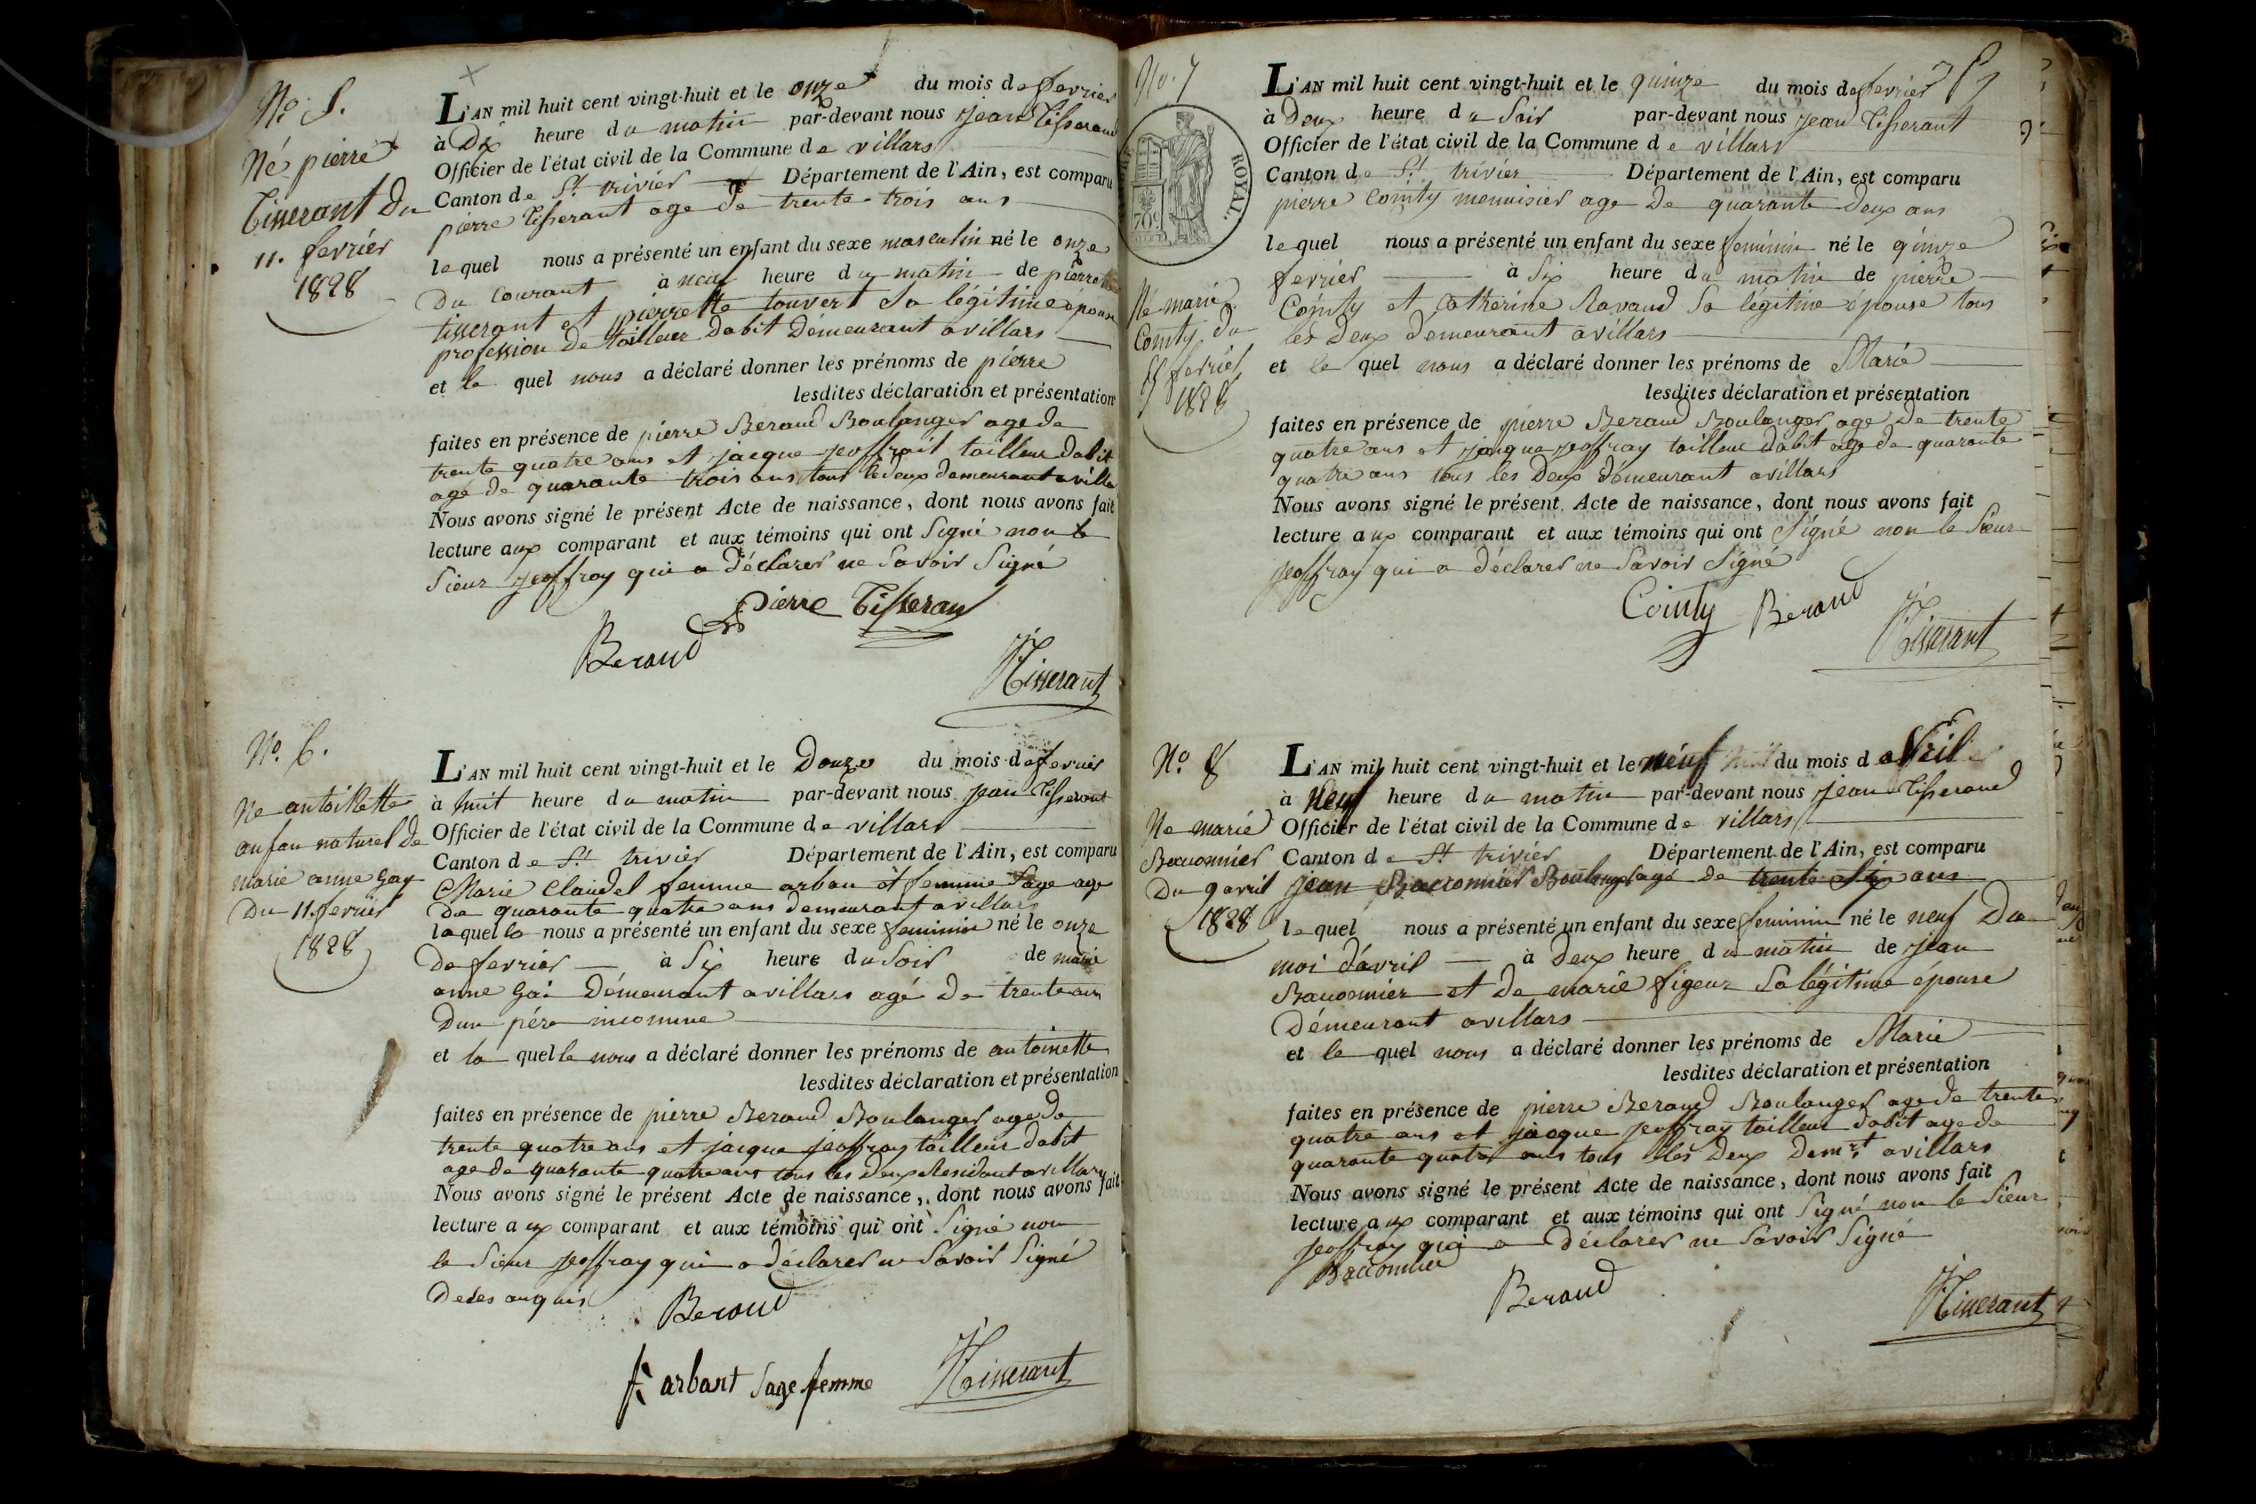 No. 5.
Né pierre
Tisserant du
11. fevrier
1828
L'AN mil huit cent vingt-huit et le onze du mois de fevrier
à Dix heure du matin par-devant nous jean Tisserand
Officier de l'état civil de la Commune de villars
Canton de St. trivier Département de l'Ain, est comparu
pierre Tisserant age de trente trois ans
lequel nous a présenté un enfant du sexe masculin né le onze
du courant à neuf heure du matin de pierre
tisserant et pierrette touvert Sa légitime epouse
profession de tailleur Dabit Démeurant avillars
et le quel nous a déclaré donner les prénoms de pierre
lesdites déclaration et présentation
faites en présence de pierre Beraud Boulanger age de
trente quatre ans et jacque jeoffrait tailleur Dabit
agé de quarante trois ans tous les deux demeurant avilla
Nous avons signé le présent Acte de naissance, dont nous avons fait
lecture aux comparant et aux témoins qui ont Signé non le
Sieur jeoffray qui a déclarer ne Savoir Signé
pierre Tisseran
Beraud
Tisserant
No. 6.
Ne antoinette
enfan naturel de
marie anne Gay
Du 11. fevrier
1828
L'AN mil huit cent vingt-huit et le Douze du mois de fevrier
à huit heure du matin par-devant nous jean Tisserant
Officier de l'état civil de la Commune de villars
Canton de St. trivier Département de l'Ain, est comparu
Marie Claudel femme arban et femme Sage age
De quarante quatre ans demeurant avillars
laquelle nous a présenté un enfant du sexe feminin né le onze
De fevrier à Six heure du Soir de marie
anne Gai Démeurant avillars agé De trente ans
Dun pére inconnue
et la quelle nous a déclaré donner les prénoms de antoinette
lesdites déclaration et présentation
faites en présence de pierre Beraud Boulanger age de
trente quatre ans et jacque jeoffray tailleur dabit
age de quarante quatre ans tous les Deux Residant avillars
Nous avons signé le présent Acte de naissance, dont nous avons fait
lecture aux comparant et aux témoins qui ont Signé non
le Sieur jeoffray qui a déclarer ne Savoir Signé
De ces anquis
Beraud
fe arbant Sage femme
Tisserant
No. 7
Né marie
Cointy du
15 fevrier
1828
ROYAL.
L'AN mil huit cent vingt-huit et le quinze du mois de fevrier
à Deux heure du Soir par-devant nous jean Tisserant
Officier de l'état civil de la Commune de villars
Canton de St. trivier Département de l'Ain, est comparu
pierre Cointy menuisier age De quarante Deux ans
lequel nous a présenté un enfant du sexe feminin né le quinze
fevrier à Six heure du matin de pierre
Cointy et Catherine Ravaud Sa légitime epouse tous
les Deux demeurant avillars
et le quel nous a déclaré donner les prénoms de Marie
lesdites déclaration et présentation
faites en présence de pierre Beraud Boulanger age De trente
quatre ans et jacque jeoffray tailleur dabit age de quarante
quatre ans tous les Deux démeurant avillars
Nous avons signé le présent Acte de naissance, dont nous avons fait
lecture aux comparant et aux témoins qui ont Signé non le Sieur
jeoffray qui a déclarer ne Savoir Signé
Cointy Beraud
Tisserant
No. 8
Ne marie
Bacconnier
Du 9 avril
1828
L'AN mil huit cent vingt-huit et le neuf du mois d avril
à Neuf heure du matin par-devant nous jean Tisserand
Officier de l'état civil de la Commune de villars
Canton de St trivier Département de l'Ain, est comparu
jean Bacconnier Boulanger agé De trente Six ans
lequel nous a présenté un enfant du sexe feminin né le neuf Du
moi d'avril à Deux heure du matin de jean
Bacconnier et De marie figeur Sa légitime epouse
Démeurant avillars
et le quel nous a déclaré donner les prénoms de Marie
lesdites déclaration et présentation
faites en présence de pierre Beraud Boulanger age de trente
quatre ans et jacque jeoffray tailleur dabit age de
quarante quatre ans tous les Deux Demrt avillars
Nous avons signé le présent Acte de naissance, dont nous avons fait
lecture aux comparant et aux témoins qui ont Signé non le Sieur
jeoffray qui a Déclarer ne Savoir Signé
Bacconnier
Beraud
Tisserant